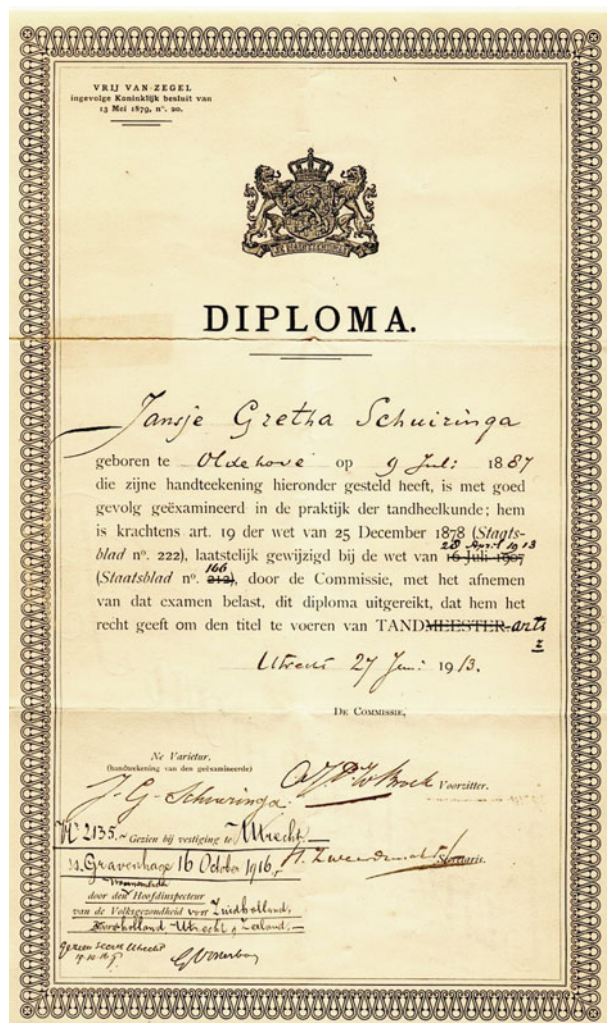 VRIJ VAN ZEGEL
ingevolge Koninklijk besluit van
13 Mei 1879, nº. 20.
JE MAINTIENDRAI
DIPLOMA.
Jansje Gretha Schuiringa
geboren te Oldehove op 9 Juli 1887
die zijne handteekening hieronder gesteld heeft, is met goed
gevolg geëxamineerd in de praktijk der tandheelkunde; hem
is krachtens art. 19 der wet van 25 December 1878 (Staats-
28 April 1913
blad nº. 222), laatstelijk gewijzigd bij de wet van 16 Juli 1907
166
(Staatsblad nº. 212), door de Commissie, met het afnemen
van dat examen belast, dit diploma uitgereikt, dat hem het
recht geeft om den titel te voeren van TANDMEESTER-arts
Utrecht 27 Juni 1913.
DE COMMISSIE,
Ne Varietur.
(handteekening van den geëxamineerde)
J. G. Schuiringa.
Voorzitter.
Nº 2135. Gezien bij vestiging te Utrecht.
Secretaris.
's Gravenhage 16 October 1916,
door den Hoofdinspecteur
van de Volksgezondheid voor Zuidholland,
Utrecht, Zeeland.